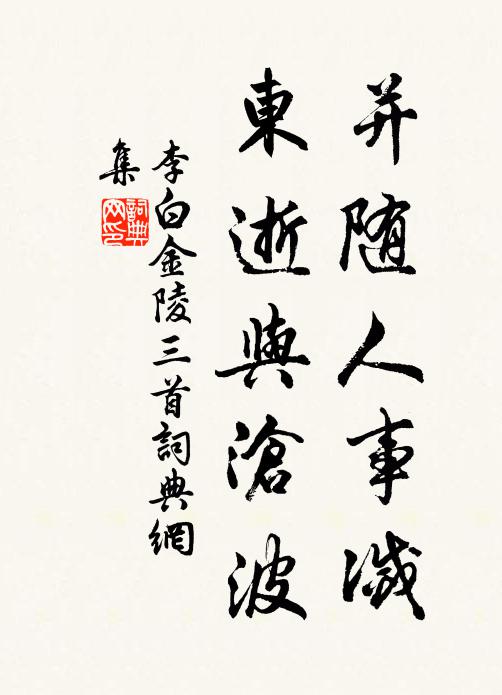 并随人事滅
東逝與滄波
李白金陵三首詞典網
集
詞典
网印